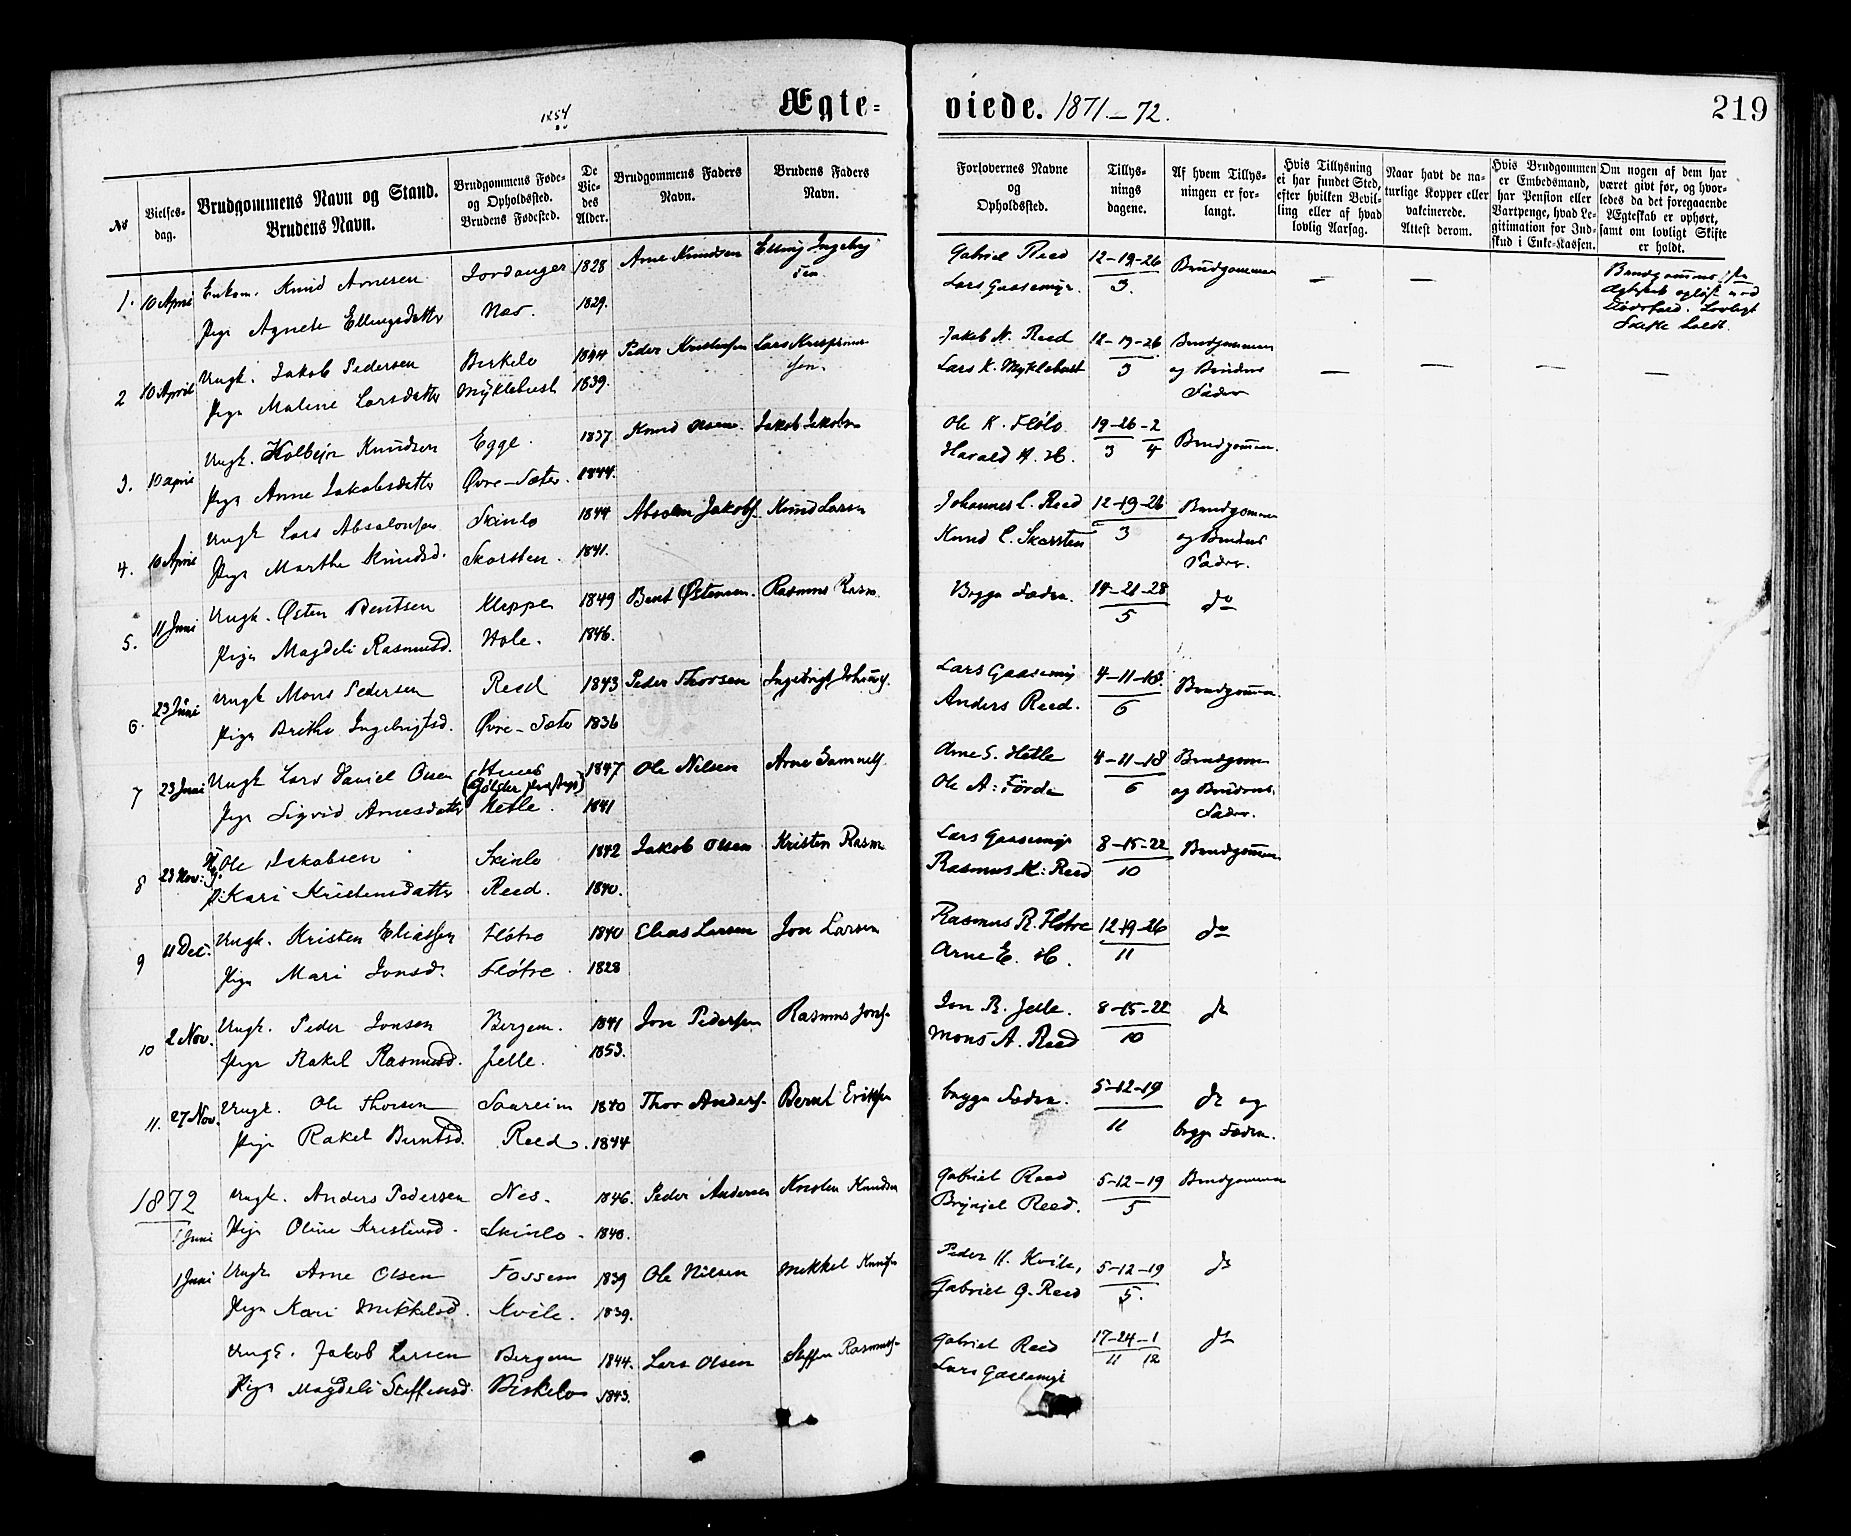 1854
Ægte-
viede. 1871–72.
219
No
Vielses-
dag.
Brudgommens Navn og Stand.
Brudens Navn.
Brudgommens Føde-
og Opholdssted.
Brudens Fødested.
De
Vie-
des
Alder.
Brudgommens Faders
Navn.
Brudens Faders
Navn.
Forlovernes Navne
og
Opholdssted.
Tillys-
nings
dagene.
Af hvem Tillys-
ningen er for-
langt.
Hvis Tillysning
ei har fundet Sted,
efter hvilken Bevil-
ling eller af hvad
lovlig Aarsag.
Naar havt de na-
turlige Kopper eller
vakcinerede.
Attest derom.
Hvis Brudgommen
er Embedsmand,
har Pension eller
Vartpenge, hvad Le-
gitimation for Ind-
skud i Enke-Kassen.
Om nogen af dem har
været givt før, og hvor-
ledes da det foregaaende
Ægteskab er ophørt,
samt om lovligt Skifte
er holdt.
1. 10 April Enkem. Knud Arnesen Jordanger 1828 Arne Knudsen Elling Ingebrig Gabriel Reed 12–19–26 Brudgommen — —
sen Lars Gaasemyr. 3.
Pige Agnete Ellingsdatter Nos. 1829.
Dødsfald. Lovligt
Skifte holdt.
2 10 April Ungk. Jakob Pedersen Birkelo 1844 Peder Kristensen Lars Jakob N. Reed 12–19–26 Brudgommen
Pige Malene Larsdatter Myklebust 1839. sen. Lars K. Myklebust 3 og Brudens — — — —
Fader
3. 10 April Ungk. Kolbejn Knudsen Egge. 1837 Knud Olsen. Jakob Jakobs Ole K. Flölo 19–26–2 Brudgommen.
Pige Anne Jakobsdatter Øvre-Sæter. 1844. Harald A. H. 3 4
4. 10 April Ungk Lars Absalonsen Skinlo 1844 Absalon Jakobs. Knud Larsen Johannes L. Reed 12–19–26 Brudgommen
Pige Marthe Knudsd. Skarsten. 1841. Knud L. Skarsten 3 og Brudens
Fader.
5. 11 Juni Ungk. Østen Bentsen Kleppe 1849 Bent Østensen. Rasmus Rasm. Begge Fædre. 14–21–28 do
Pige Magdeli Rasmusd. Hole. 1846. 5
6. 23 Juni Ungk Mons Pedersen Reed 1843 Peder Thorsen Ingebrigt Lars Gaasemyr 4–11–18. Brudgommen
Pige Brithe Ingebrigtsd. Øvre-Sæter 1836 Anders Reed. 6
7 23 Juni Ungk Lars Daniel Olsen 1847 Ole Nilsen Arne Samuels. Arne S. Hetle 4–11–18 Brudgom
Pige Sigrid Arnesdatter Hetle. 1841 Ole A: Förde 6 og Brudens
Fader.
8 23 Nov: Ole Jakobsen Skinlo 1842 Jakob Olsen Kristen Rasm Lars Gaasemyr 8–15–22 Brudgommen
P: Kari Kristensdatter Reed. 1840. Rasmus M: Reed 10
9 11 Dec: Ungk. Kristen Eliassen Flötre 1840 Elias Larsen Jon Larsen Rasmus R. Flötre 12–19–26 do
Pige Mari Jonsd. Flötre 1828 Arne E. H. 11
10 2 Nov. Ungk. Peder Jonsen Bergem. 1841 Jon Pedersen Rasmus Jons. Jon B. Jelle. 8–15–22 do
Pige Rakel Rasmusd. Jelle. 1853. Mons A. Reed 10
11. 27 Nov. Ungk. Ole Thorsen Saareim 1840 Thor Anders. Bernt Eriksen begge Fædre. 5–12–19 do og
Pige Rakel Berntsd. Reed. 1844 11 begge Fædre.
1872 Ungk. Anders Pedersen Nes. 1846. Peder Andersen Kristen Knudsen Gabriel Reed 5–12–19 Brudgommen
1 Juni Pige Oline Kristensd. Skinlo. 1840. Brynjel Reed. 5
1 Juni Ungk Arne Olsen Fossem 1839 Ole Nilsen Mikkel Knudsen Peder H. Kvile, 5–12–19 do
Pige Kari Mikkelsd. Kvile. 1839. Gabriel G. Reed 5.
Ungk. Jakob Larsen Bergem 1844. Lars Olsen Steffen Rasmus Gabriel Reed 17–24–1 do
Pige Magdeli Steffensd. Birkelo 1843. Lars Gaasemyr 11 12